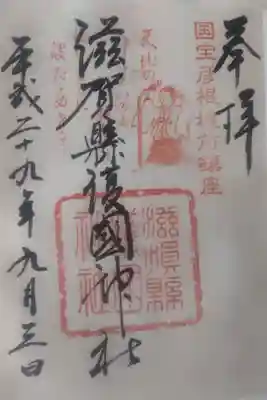 奉拝
国宝彦根城鎮座
滋賀縣護國神社
滋賀縣護國神社
平成二十九年九月三日